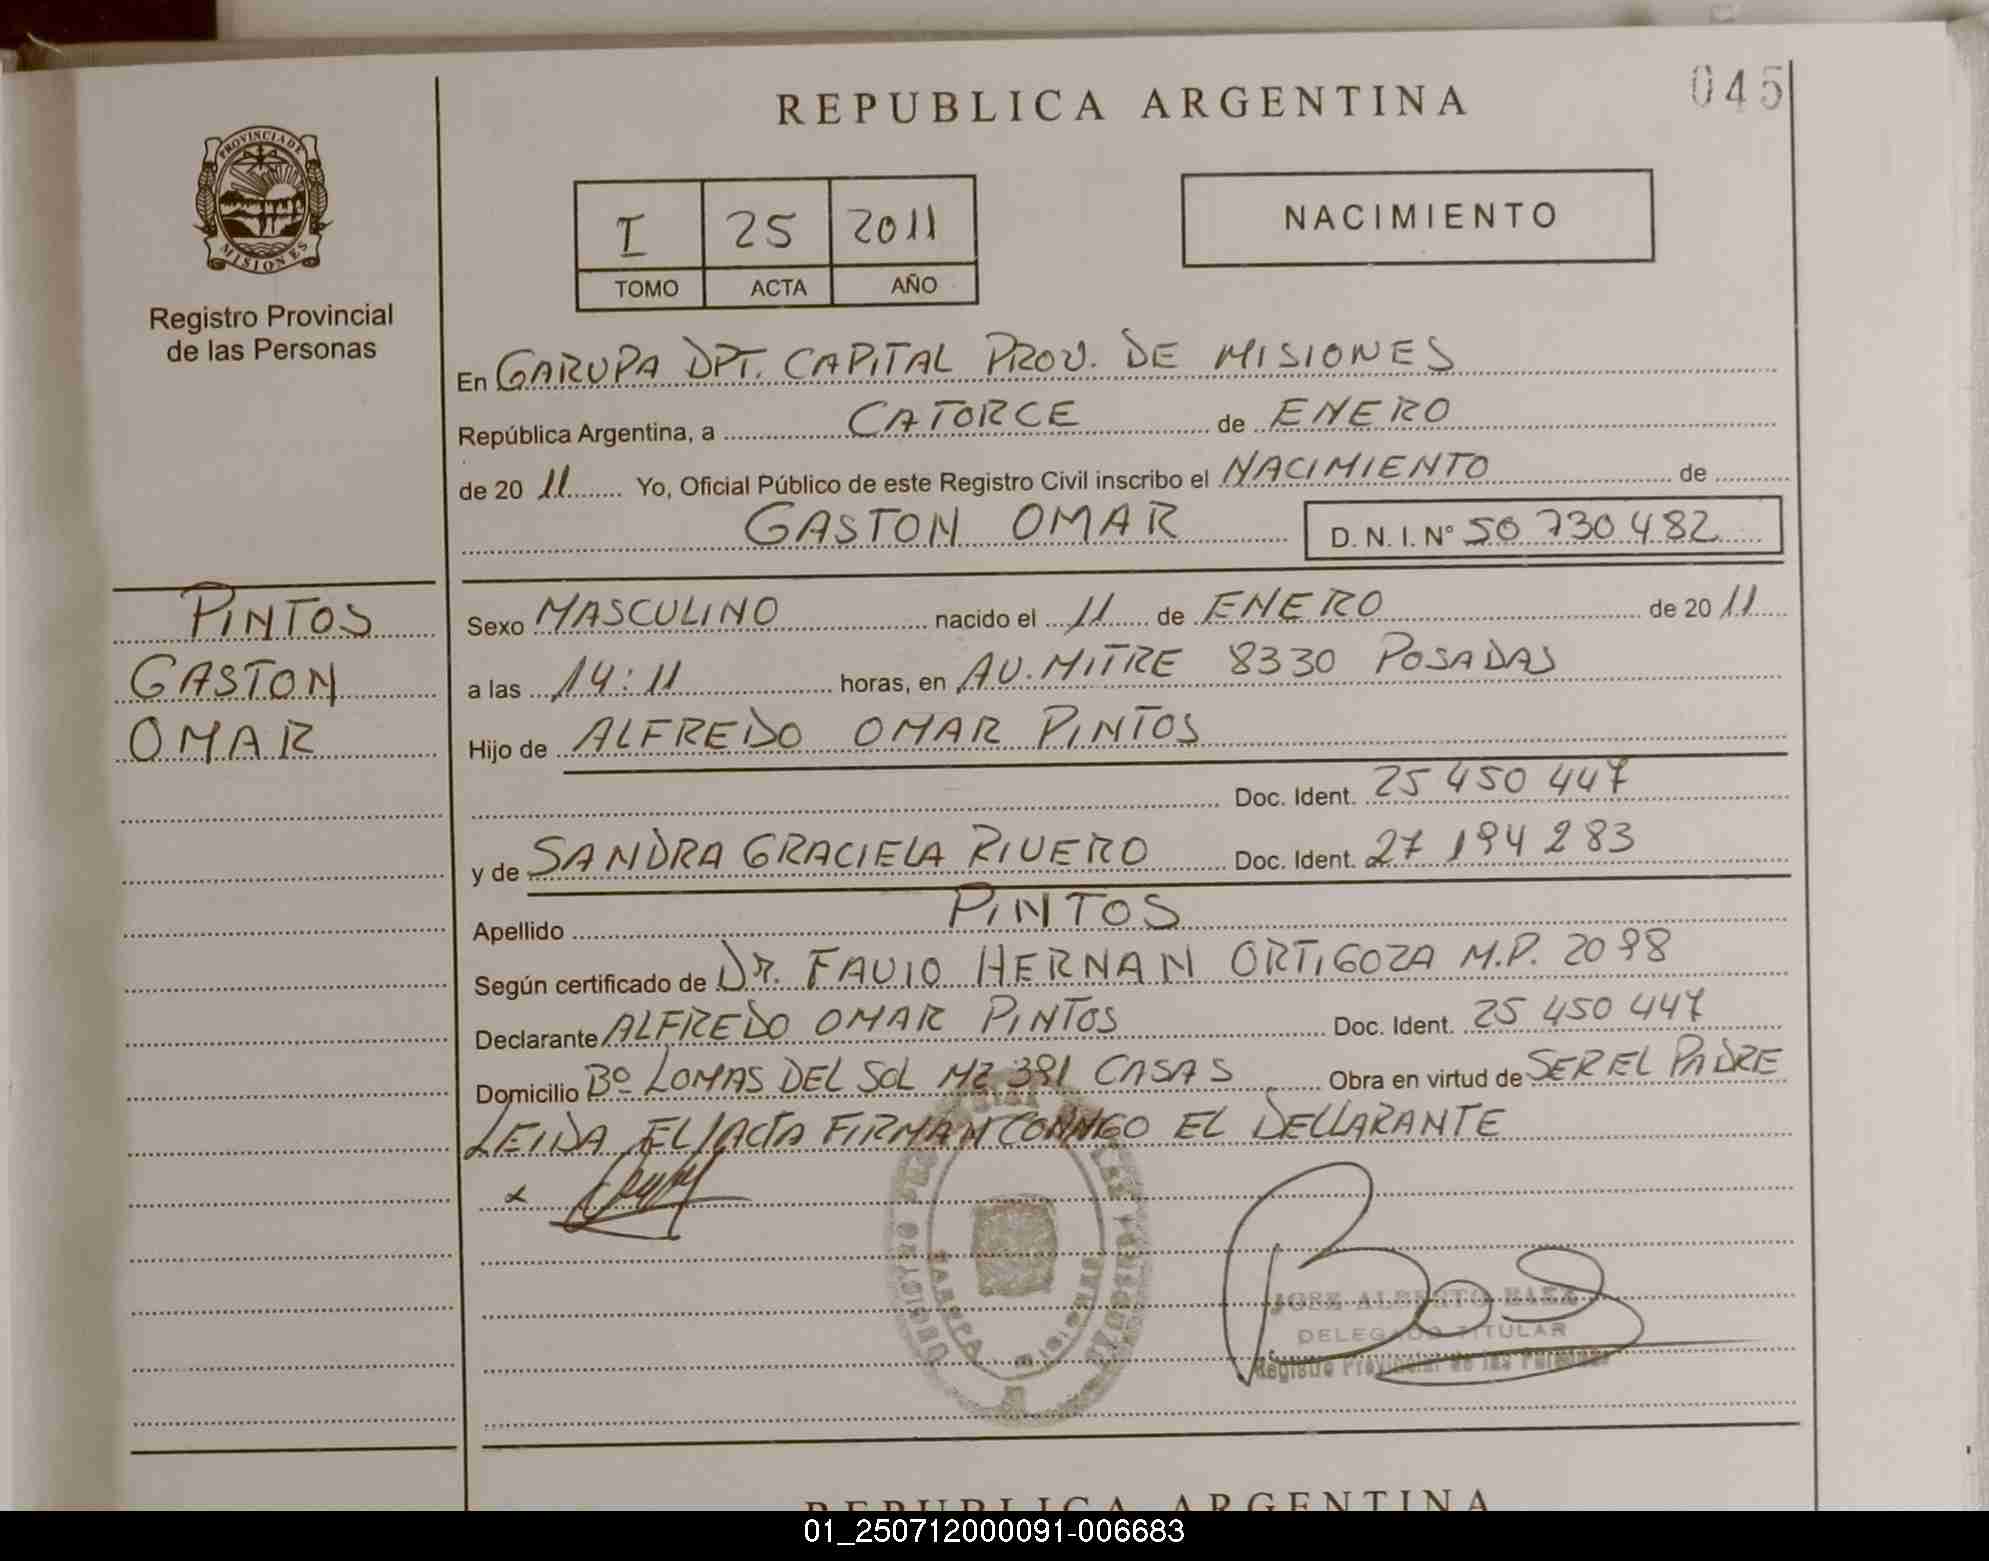 045
REPUBLICA ARGENTINA
PROVINCIA DE
MISIONES
Registro Provincial
de las Personas
I 25 2011
TOMO ACTA AÑO
NACIMIENTO
En GARUPA DPT. CAPITAL PROV. DE MISIONES
República Argentina, a CATORCE de ENERO
de 20 11 Yo, Oficial Público de este Registro Civil inscribo el NACIMIENTO de
GASTON OMAR D. N. I. N° 50 730 482
PINTOS
GASTON
OMAR
Sexo MASCULINO nacido el 11 de ENERO de 20 11
a las 14:11 horas, en AV. MITRE 8330 POSADAS
Hijo de ALFREDO OMAR PINTOS
Doc. Ident. 25 450 447
y de SANDRA GRACIELA RIVERO Doc. Ident. 27 194 283
Apellido PINTOS
Según certificado de Dr. FAVIO HERNAN ORTIGOZA M.P. 2098
Declarante ALFREDO OMAR PINTOS Doc. Ident. 25 450 447
Domicilio Bº LOMAS DEL SOL MZ 391 CASA 5 Obra en virtud de SER EL PADRE
LEIDA EL ACTA FIRMAN CONMIGO EL DECLARANTE
JOSE ALBERTO BAEZ
DELEGADO TITULAR
Registro Provincial de las Personas
GARUPA MISIONES
REPUBLICA ARGENTINA
01_250712000091-006683